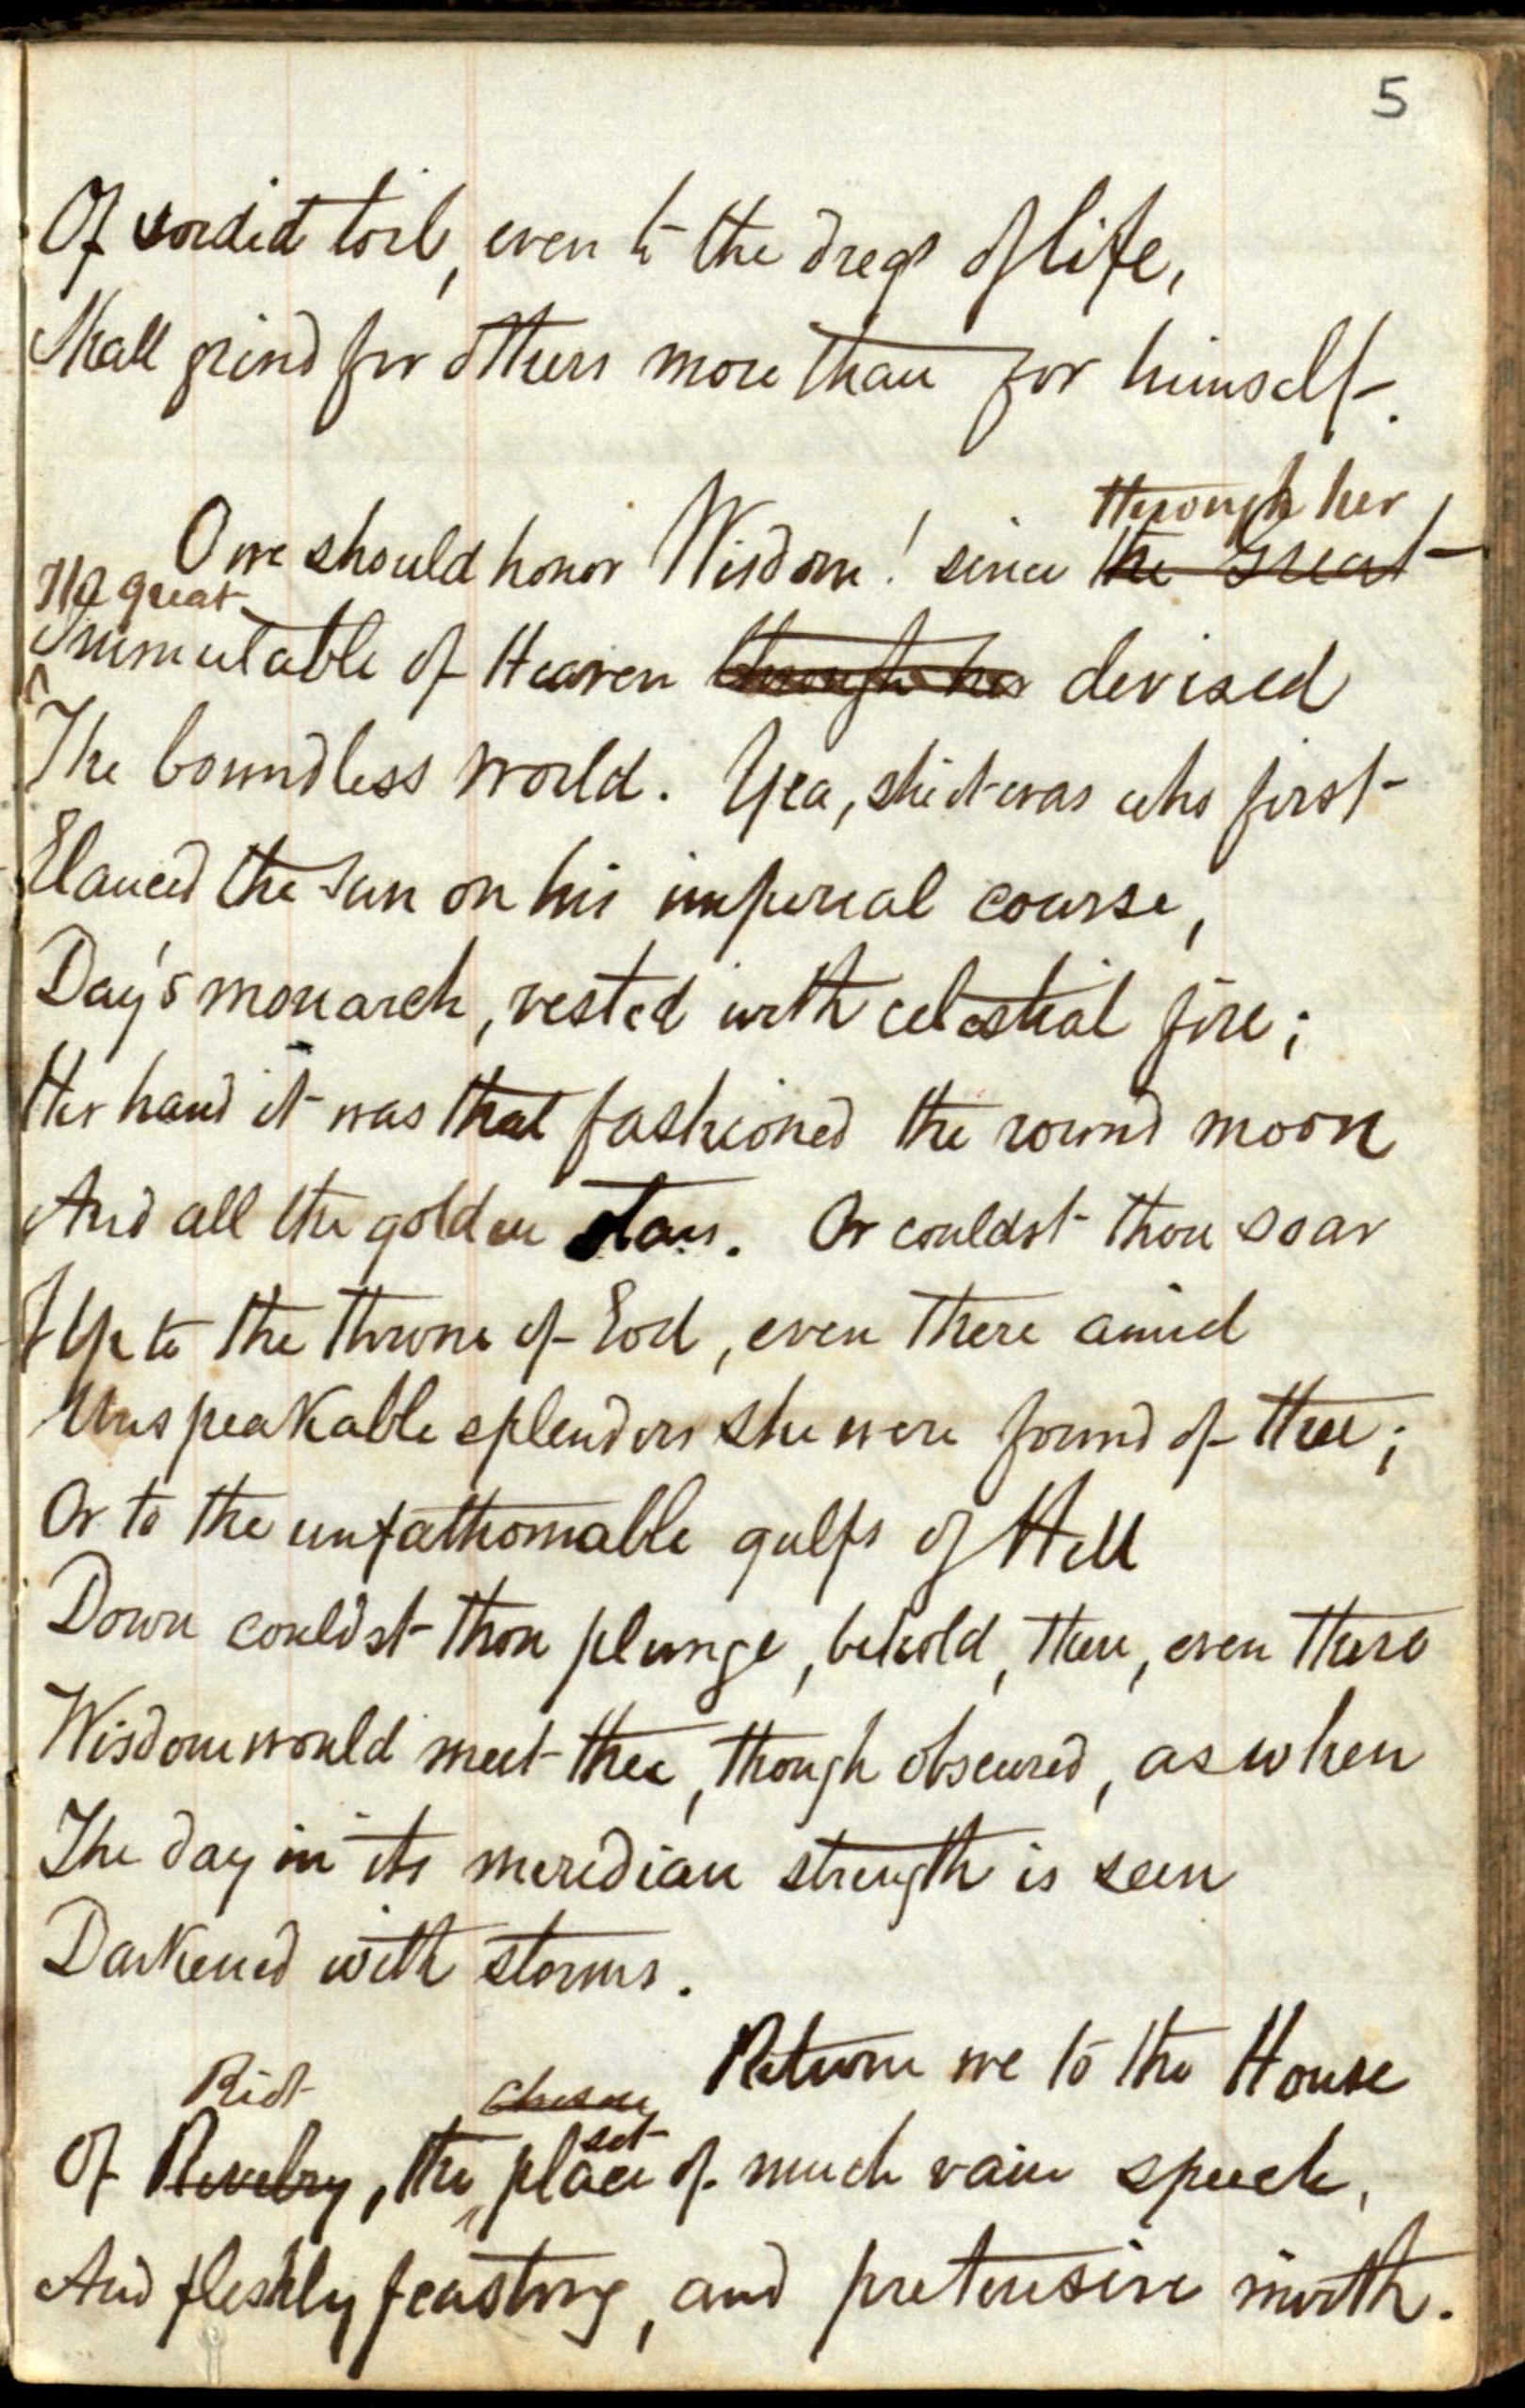 5
Of sordid toil, even to the dregs of life,
Shall grind for others more than for himself.
through her
O we should honor Wisdom! since the Great
The great
Immutable of Heaven through her devised
The boundless world. Yea, she it was who first
Elanced the sun on his imperial course,
Day's monarch, vested with celestial fire;
Her hand it was that fashioned the round moon
And all the golden stars. Or couldst thou soar
Up to the throne of God, even there amid
Unspeakable splendors she were found of thee;
Or to the unfathomable gulfs of Hell
Down couldst thou plunge, behold, there, even there
Wisdom would meet thee, though obscured, as when
The day in its meridian strength is seen
Darkened with storms.
Return we to the House
Riot chosen
set
Of Revelry, the place of much vain speech,
And fleshly feasting, and pretensive mirth.